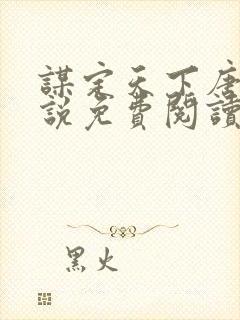 謀定天下唐
說免費閱讀
黑火